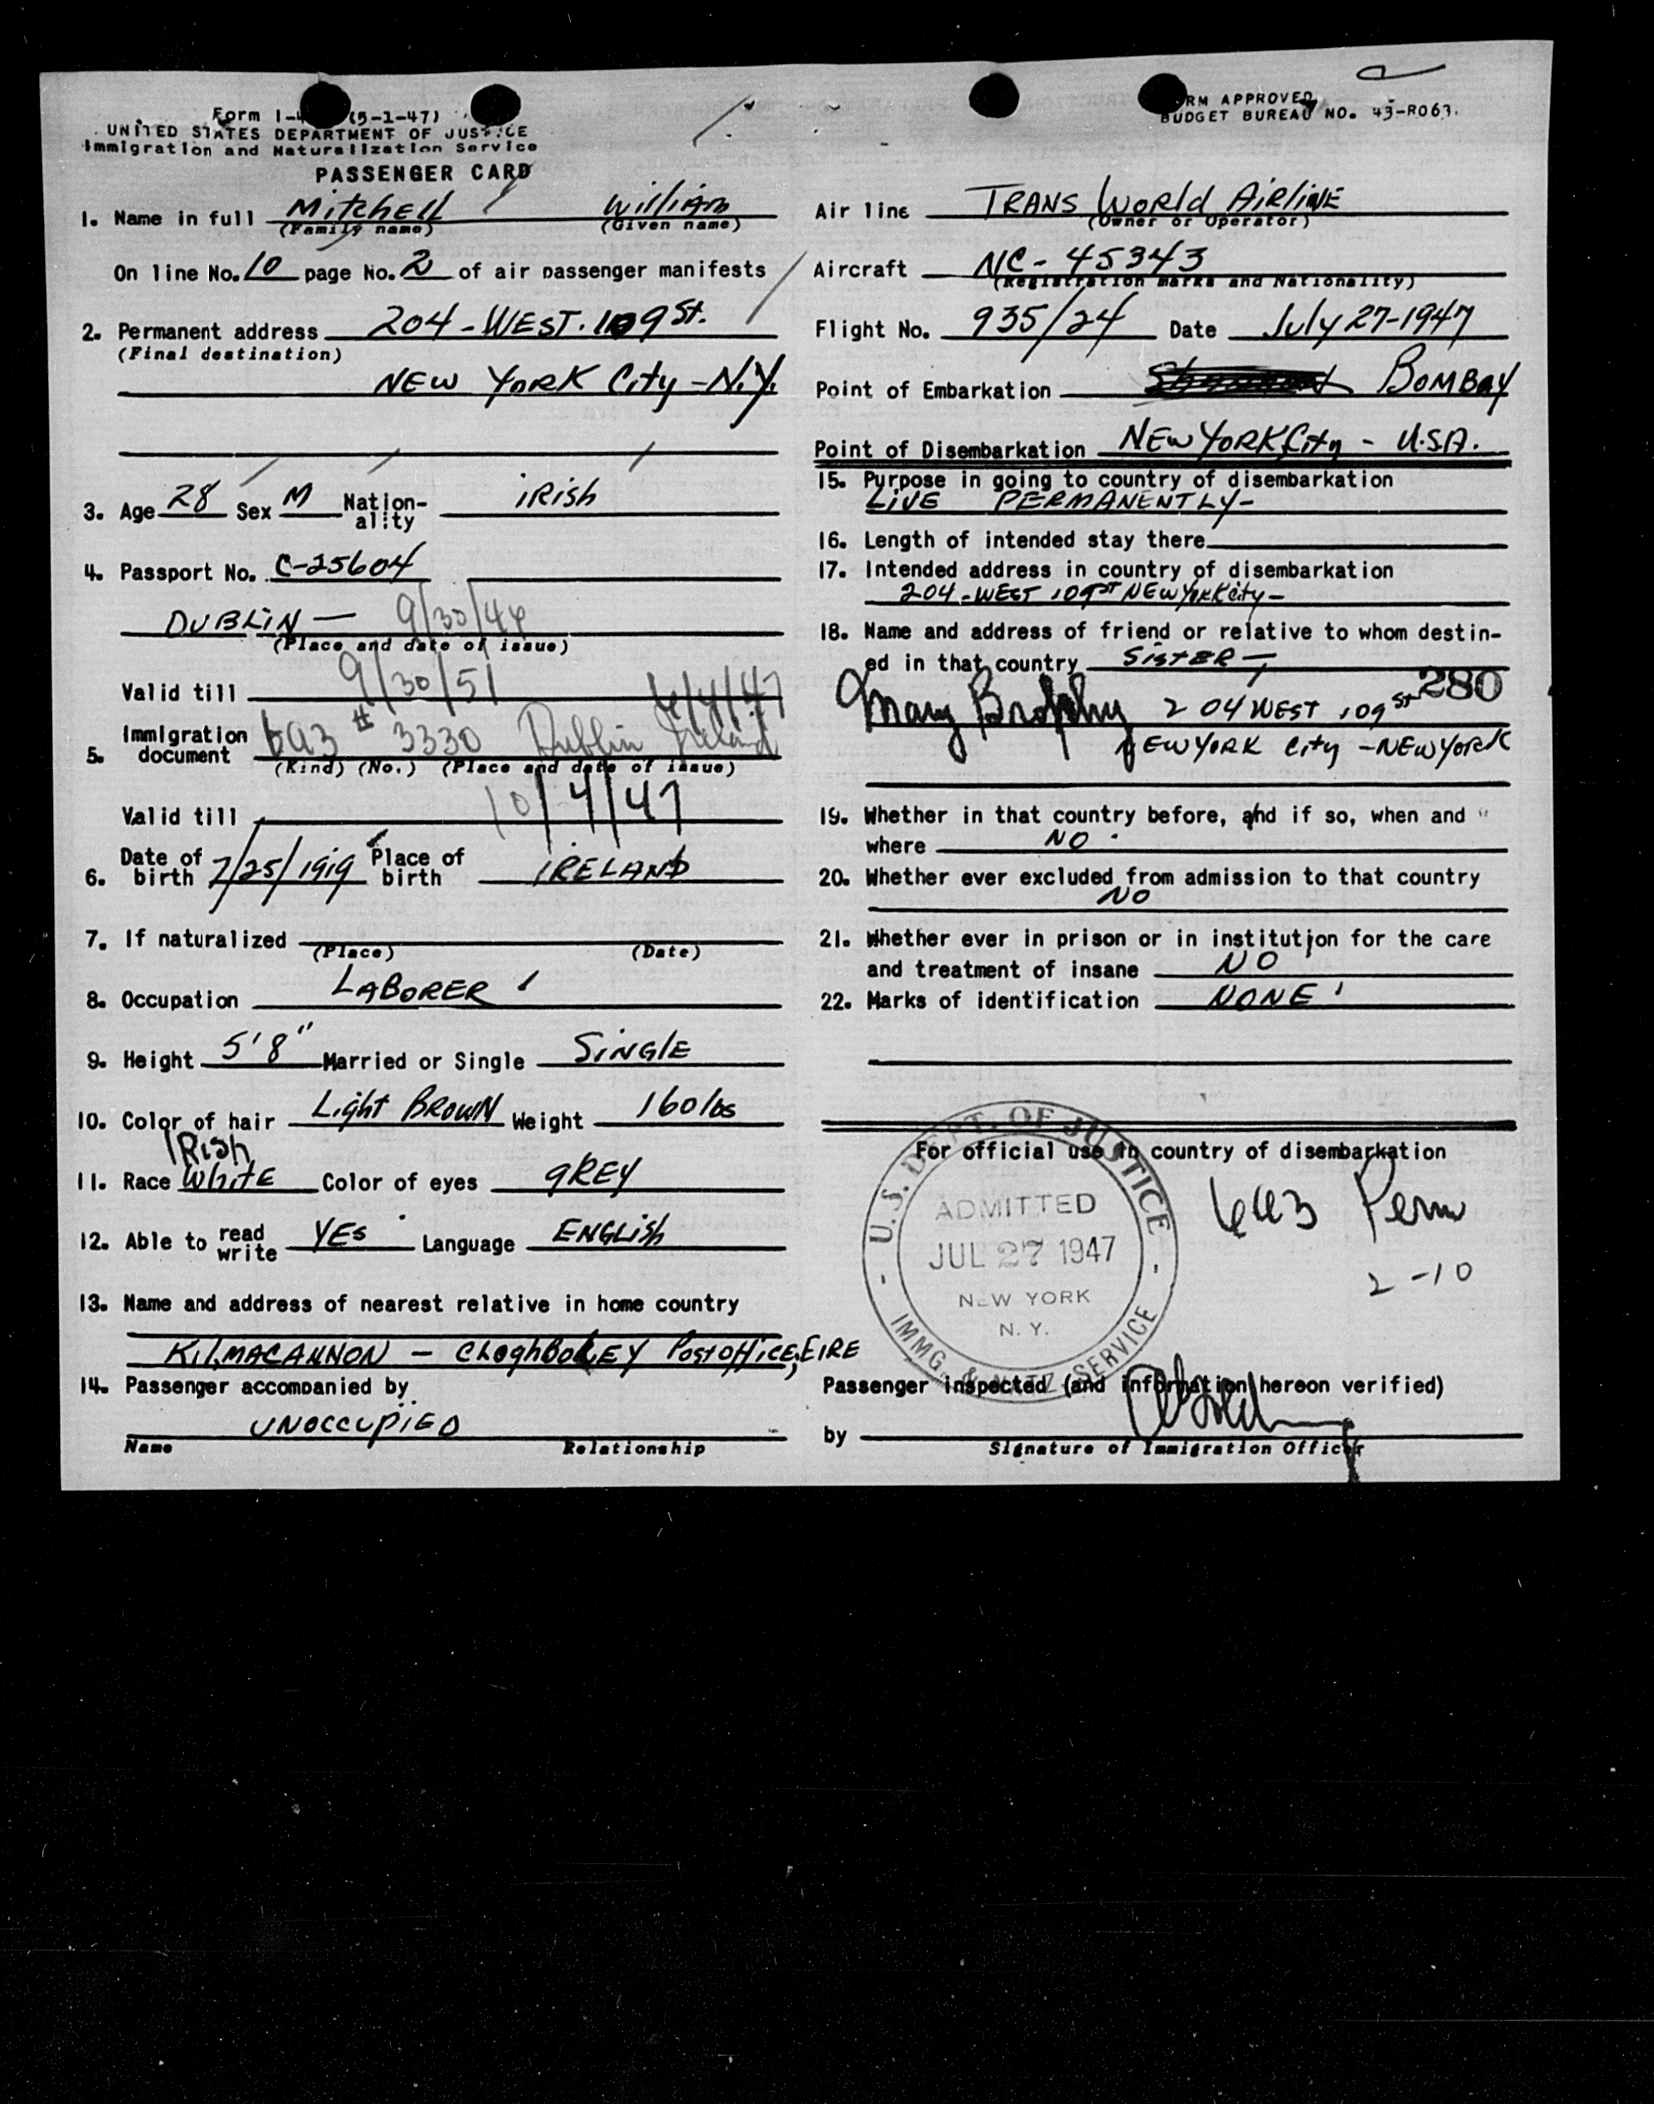 Form I-4 (5-1-47)
UNITED STATES DEPARTMENT OF JUSTICE
Immigration and Naturalization Service
PASSENGER CARD
FORM APPROVED
BUDGET BUREAU NO. 43-R063.
1. Name in full Mitchell William
(Family name) (Given name)
On line No. 10 page No. 2 of air passenger manifests
2. Permanent address 204-WEST. 109 St.
(Final destination)
NEW YORK City-N.Y.
3. Age 28 Sex M Nation-ality iRish
4. Passport No. C-25604
DUBLIN - 9/30/46
(Place and date of issue)
Valid till 9/30/51
5. Immigration document 6a3 # 3330 Dublin Ireland 6/4/47
(Kind) (No.) (Place and date of issue)
Valid till 10/4/47
6. Date of birth 7/25/1919 Place of birth IRELAND
7. If naturalized
(Place) (Date)
8. Occupation LABORER
9. Height 5'8" Married or Single SiNGlE
10. Color of hair Light BROWN Weight 160 lbs
IRish
11. Race White Color of eyes gREY
12. Able to read write YEs Language ENGLish
13. Name and address of nearest relative in home country
KILMACANNON - CloghBolEY Post Office, EIRE
14. Passenger accompanied by
UNOCCUPiED
Name Relationship
Air line TRANS World AiRliNE
(Owner or Operator)
Aircraft NC-45343
(Registration marks and Nationality)
Flight No. 935/24 Date July 27-1947
Point of Embarkation BOMBAY
Point of Disembarkation NEW YORK City - U.S.A.
15. Purpose in going to country of disembarkation
LiVE PERMANENTLY-
16. Length of intended stay there
17. Intended address in country of disembarkation
204-WEST 109 ST NEW YORK City-
18. Name and address of friend or relative to whom destin-
ed in that country SisTER -
280
Mary Brophy 204 WEST 109 ST
NEW YORK City - NEW YORK
19. Whether in that country before, and if so, when and
where NO
20. Whether ever excluded from admission to that country
NO
21. Whether ever in prison or in institution for the care
and treatment of insane NO
22. Marks of identification NONE
For official use in country of disembarkation
U.S. DEPT. OF JUSTICE
ADMITTED
JUL 27 1947
NEW YORK
N.Y.
IMMG. & NATZ. SERVICE
6a3 Perm
2-10
Passenger inspected (and information hereon verified)
by
Signature of Immigration Officer